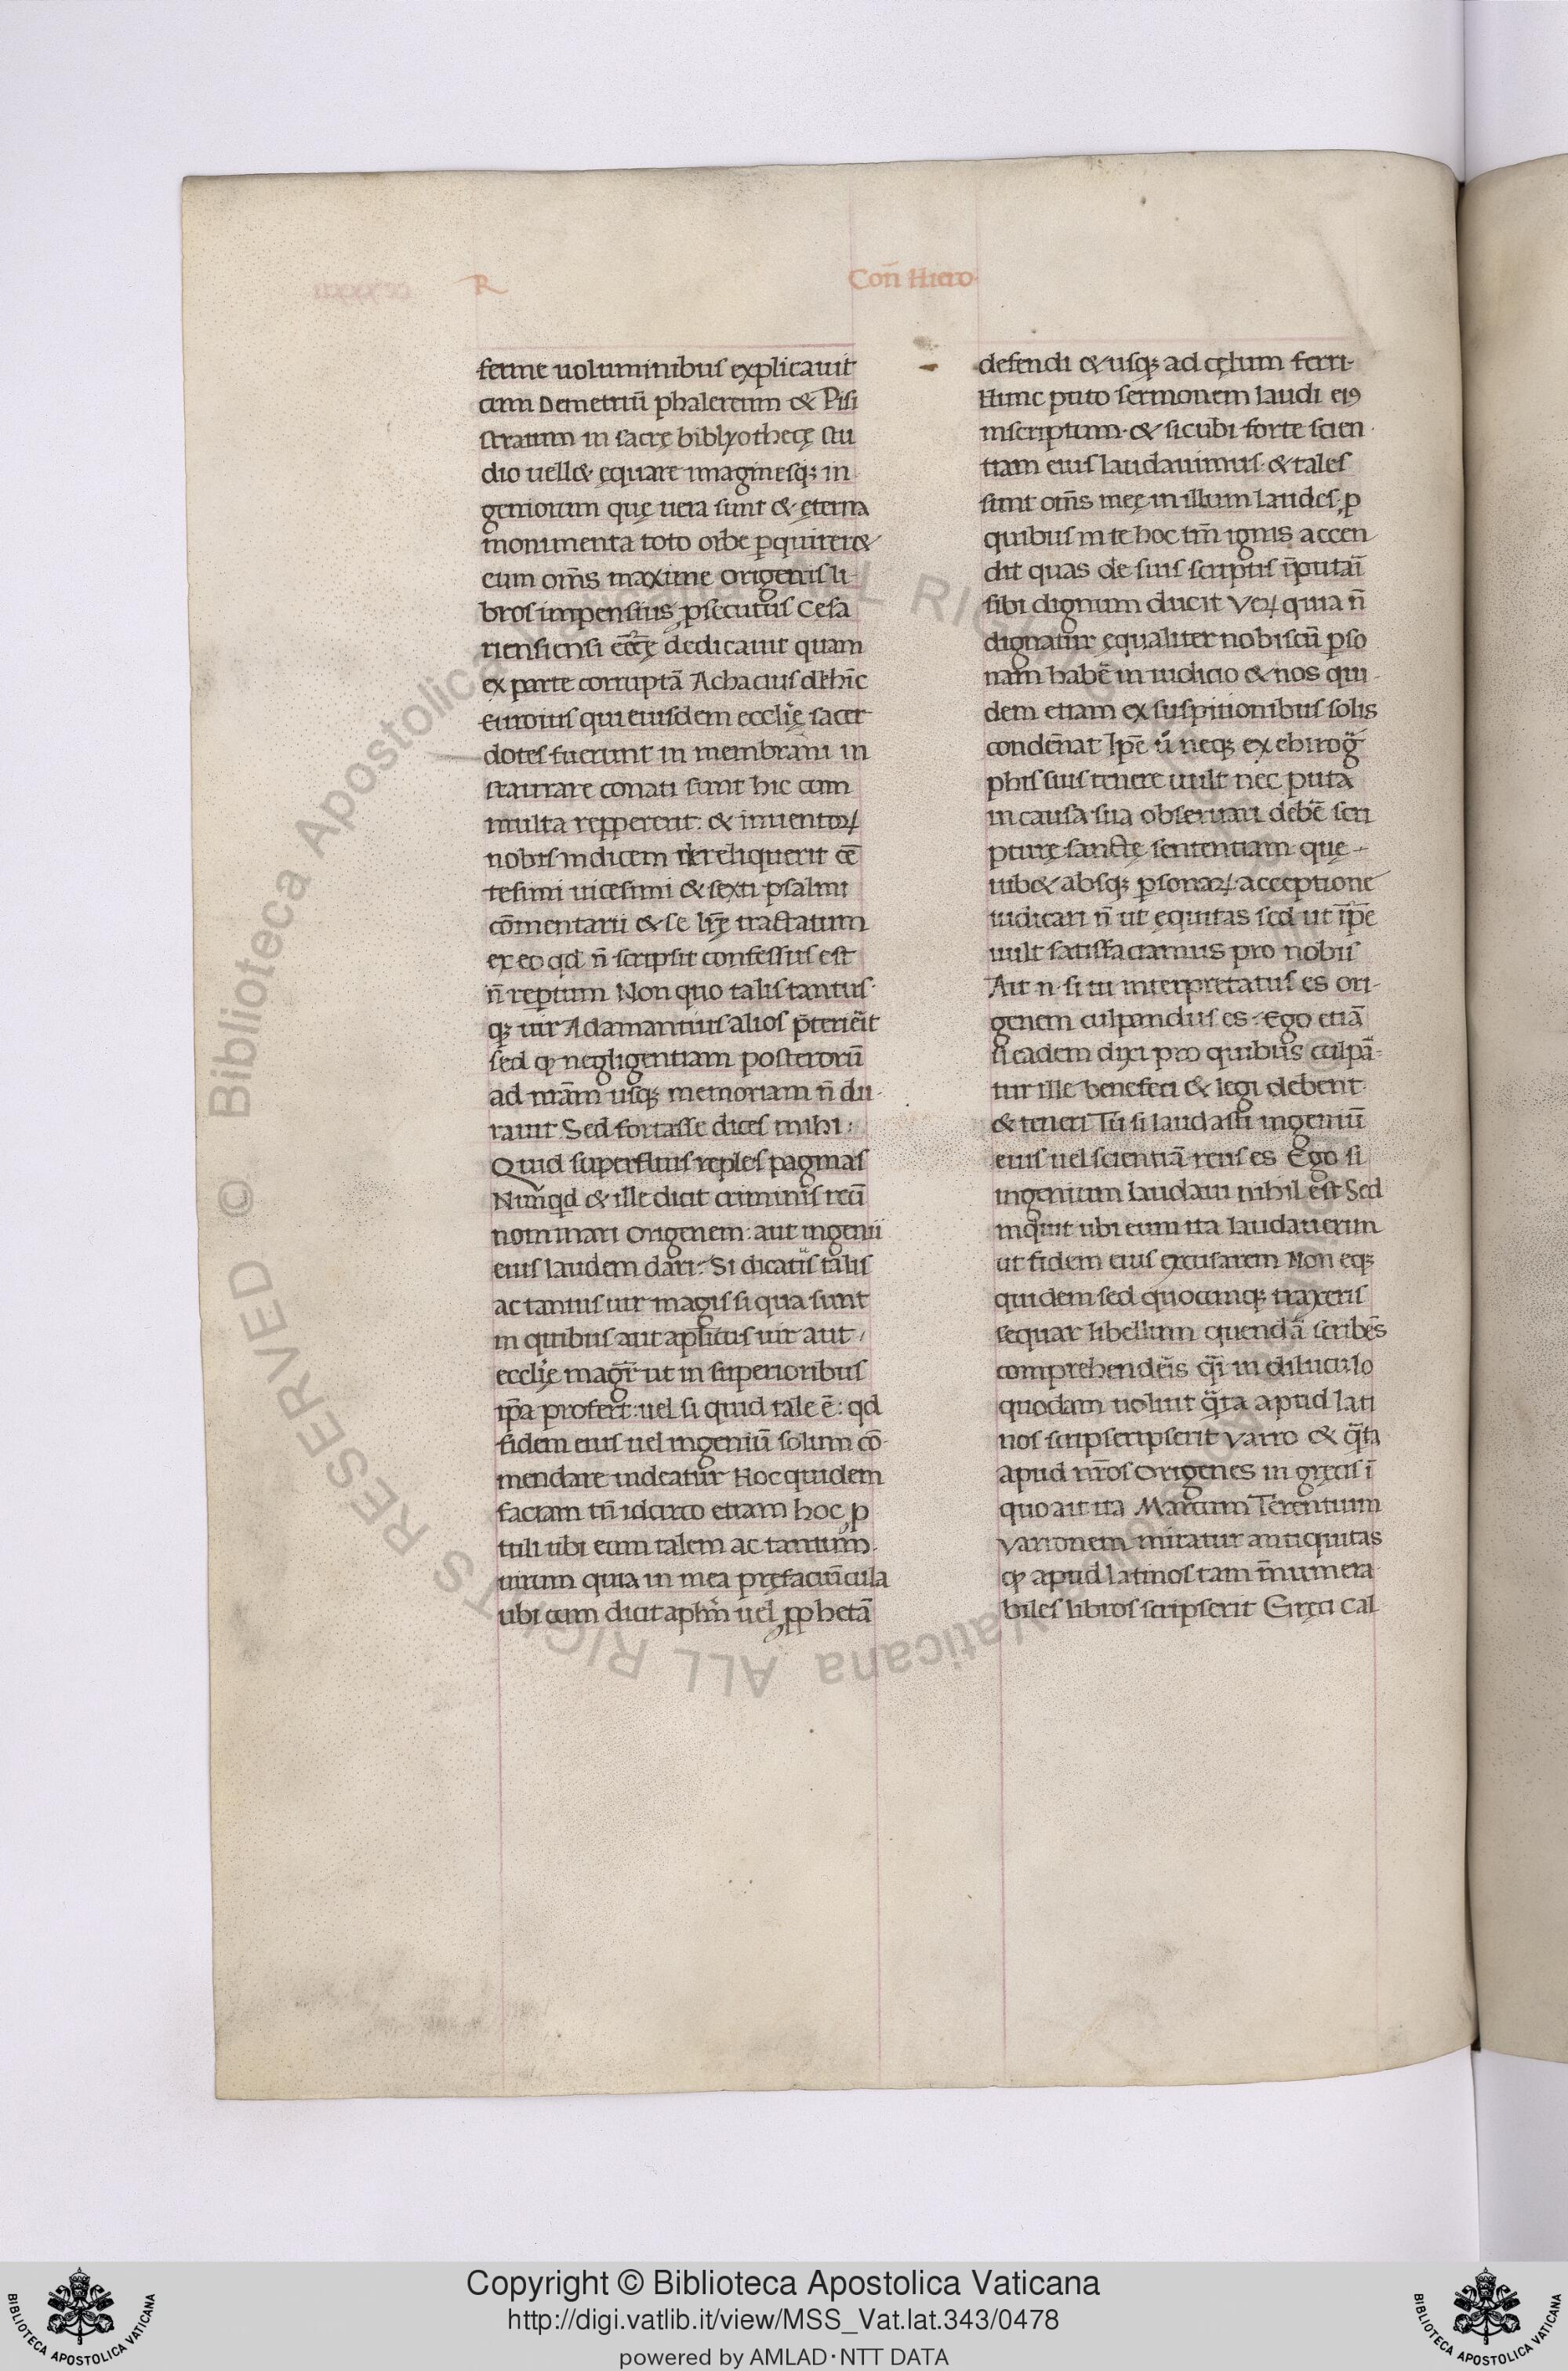 R
Con̄ Hiero
ferme uoluminibus explicauit
cum Demetriū phalereum & Pisi
stratum in sacrę bibliyothecę stu
dio uell& ęquare imaginesq; in
geniorum quę uera sunt & ęterna
monumenta toto orbe ꝑquirer&
cum om̄s maxime origenis li
bros impensius ꝓsecutus Cesa
riensiensi ecc̄ę dedicauit quam
ex parte corruptā Achacius dehīc
euroius qui eiusdem ecclię sacer
dotes fuerunt in membranis in
staurare conati sunt hic cum
multa reppererit: & inuentoꝝ
nobis indicem dereliquerit cē
tesimi uicesimi & sexti psalmi
cōmentarii & se lr̄ę tractatum
ex eo qd n̄ scripsit confessus est
n̄ reꝑtum Non quo talis tantus
q; uir Adamantius alios p̄terierit
sed ꝙ negligentiam posterorū
ad nr̄am usq; memoriam n̄ du
rauit Sed fortasse dices mihi:
Quid superfluis reples paginas
Nunqd & ille dicit criminis reū
nominari origenem: aut ingenii
eius laudem dari: Si dicatis talis
ac tantus uir magis si qua sunt
in quibus aut apl̄icus uir aut
ecclię magr̄ ut in superioribus
ip̄a profert: uel si quid tale ē: qd
fidem eius uel ingeniū solum cō
mendare uideatur Hoc quidem
faciam tn̄ idcirco etiam hoc ꝓ
tuli ubi eum talem ac tantum
uirum quia in mea pręfaciūcula
ubi eum dicit aplm̄ uel ꝓphetā
defendi & usq; ad cęlum ferri
Hunc puto sermonem laudi eiꝰ
inscriptum & sicubi forte scien
tiam eius laudauimus & tales
sunt om̄s meę in illum laudes ꝓ
quibus in te hoc tm̄ ignis accen
dit quas de suis scriptis īputari
sibi dignum ducit Veꝝ quia n̄
dignatur ęqualiter nobiscū ꝑso
nam habē in iudicio & nos qui
dem etiam ex suspitionibus solis
condēnat Ip̄e u̇ neq; ex chirogra
phis suis tenere uult nec puta
in causa sua obseruari debē scri
pturę sanctę sententiam quę
iub& absq; ꝑsonaꝝ acceptione
iudicari n̄ ut ęquitas sed ut ip̄e
uult satisfaciamus pro nobis
Ait n· si tu interpretatus es ori
genem culpandus es: Ego etiā
si eadem dixi pro quibus culpa
tur ille benefeci & legi debent
& teneri Tu si laudasti ingeniū
eius uel scientiā reus es Ego si
ingenium laudaui nihil est Sed
inquit ubi eum ita laudauerim
ut fidem eius excusarem Non eq;
quidem sed quocumq; traxeris
sequar libellum quendā scribēs
comprehendēis qi in diluculo
quodam uoluit q̄ta apud lati
nos scripscripserit Varro & q̄ta
apud nr̄os Origenes in gręcis ī
quo ait ita Marcum Terentium
Varronem miratur antiquitas
ꝙ apud latinos tam īnumera
biles libros scripserit Gręci Cal
© Biblioteca Apostolica Vaticana ALL RIGHTS RESERVED
Copyright © Biblioteca Apostolica Vaticana
http://digi.vatlib.it/view/MSS_Vat.lat.343/0478
powered by AMLAD·NTT DATA
BIBLIOTECA APOSTOLICA VATICANA
BIBLIOTECA APOSTOLICA VATICANA